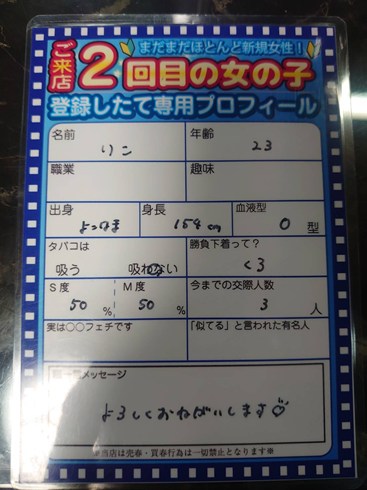 まだまだほとんど新規女性!
ご来店2回目の女の子
登録したて専用プロフィール
名前 りこ 年齢 23
職業 趣味
出身 よこはま 身長 154cm 血液型 O型
タバコは 吸う 吸わない 勝負下着って? くろ
S度 50% M度 50% 今までの交際人数 3人
実は〇〇フェチです 「似てる」と言われた有名人
メッセージ
よろしくおねがいします♡
当店は売春・買春行為は一切禁止となります※